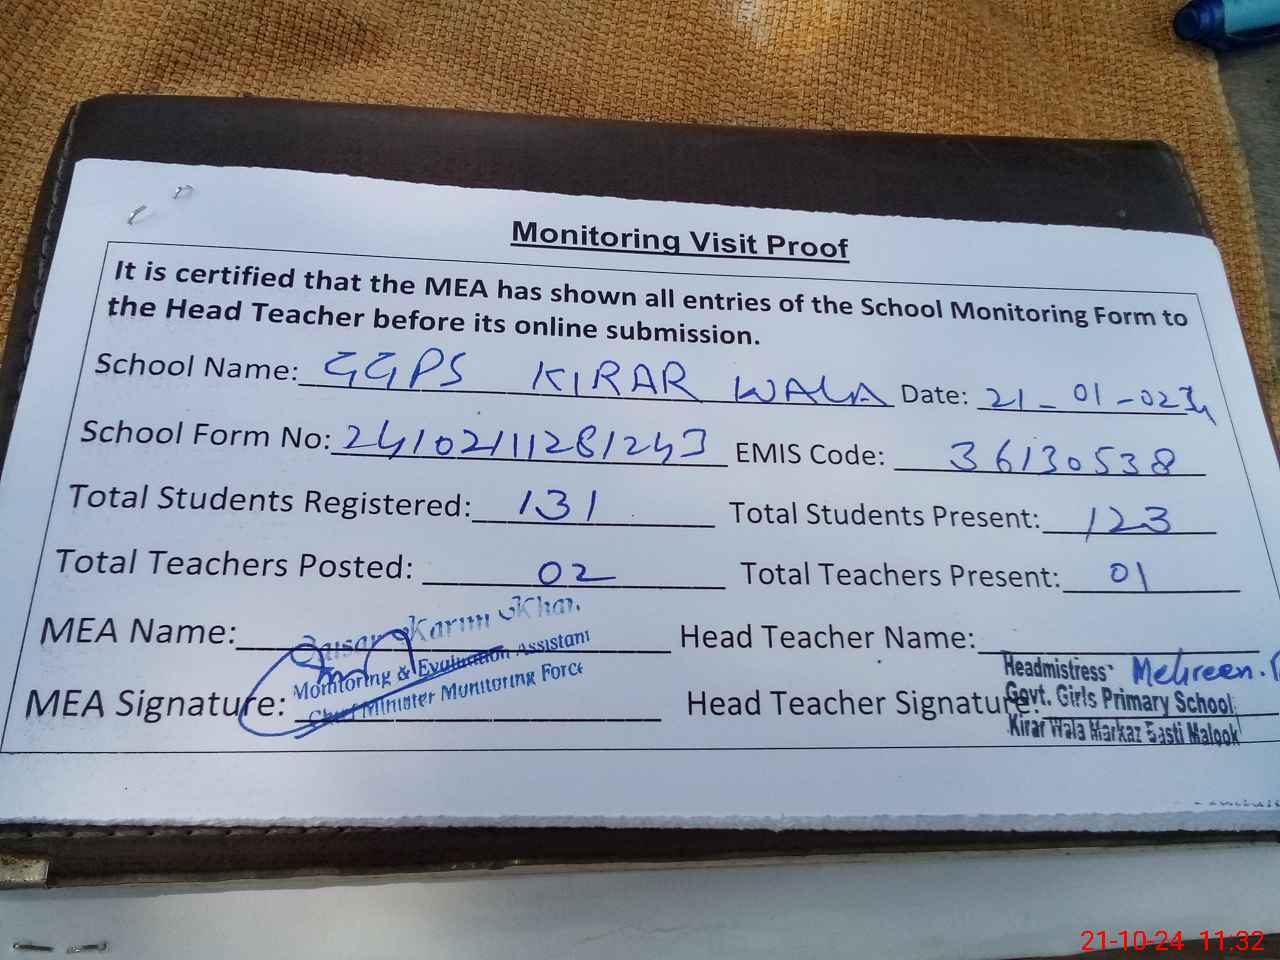 Monitoring Visit Proof
It is certified that the MEA has shown all entries of the School Monitoring Form to
the Head Teacher before its online submission.
School Name: GGPS KIRAR WALA Date: 21-01-024
School Form No: 24102111281243 EMIS Code: 36130538
Total Students Registered: 131 Total Students Present: 123
Total Teachers Posted: 02 Total Teachers Present: 01
MEA Name: Karim Khan Head Teacher Name:
Monitoring & Evaluation Assistant
Chief Minister Monitoring Force
MEA Signature: Head Teacher Signature:
Headmistress Mehreen
Govt. Girls Primary School
Kirar Wala Markaz Basti Malook
21-10-24 11:32